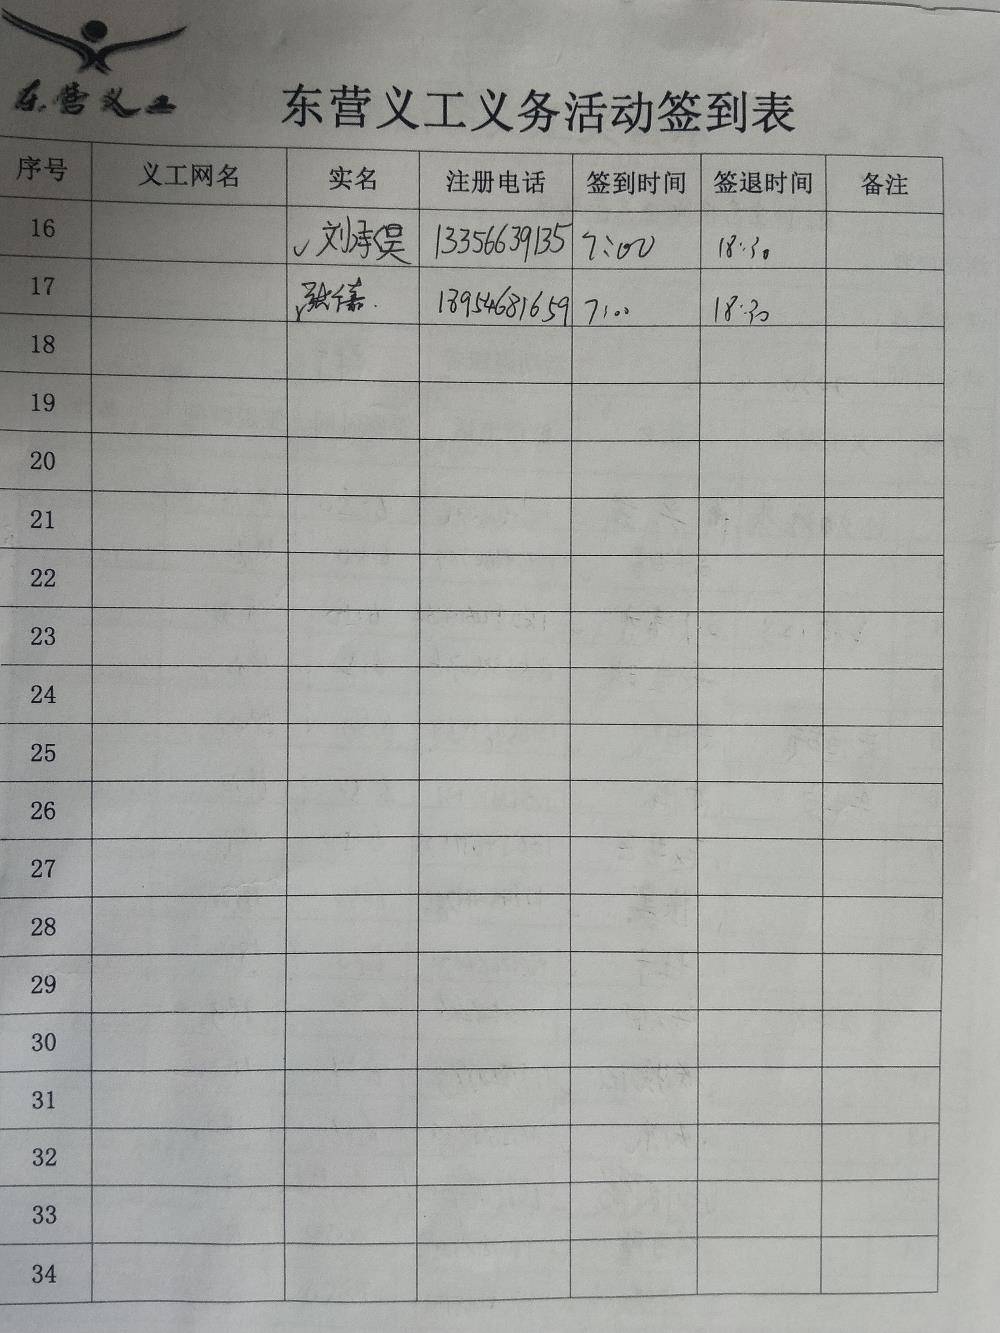 东营义工
东营义工义务活动签到表
序号 义工网名 实名 注册电话 签到时间 签退时间 备注
16 ✓刘承昊 13356639135 7:00 18:30
17 13954681659 7:00 18:30
18
19
20
21
22
23
24
25
26
27
28
29
30
31
32
33
34